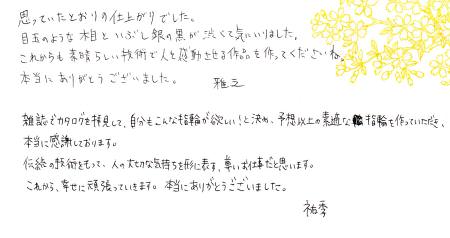 思っていたとおりの仕上がりでした。
目玉のような木目といぶし銀の黒が渋くて気にいりました。
これからも素晴らしい技術で人を感動させる作品を作ってくださいね。
本当にありがとうございました。
雅之
雑誌でカタログを拝見して、自分もこんな指輪が欲しい!と決め、予想以上の素適な指輪を作っていただき、
本当に感謝しております。
伝統の技術をもって、人の大切な気持ちを形に表す、尊いお仕事だと思います。
これから、幸せに頑張っていきます。本当にありがとうございました。
祐季